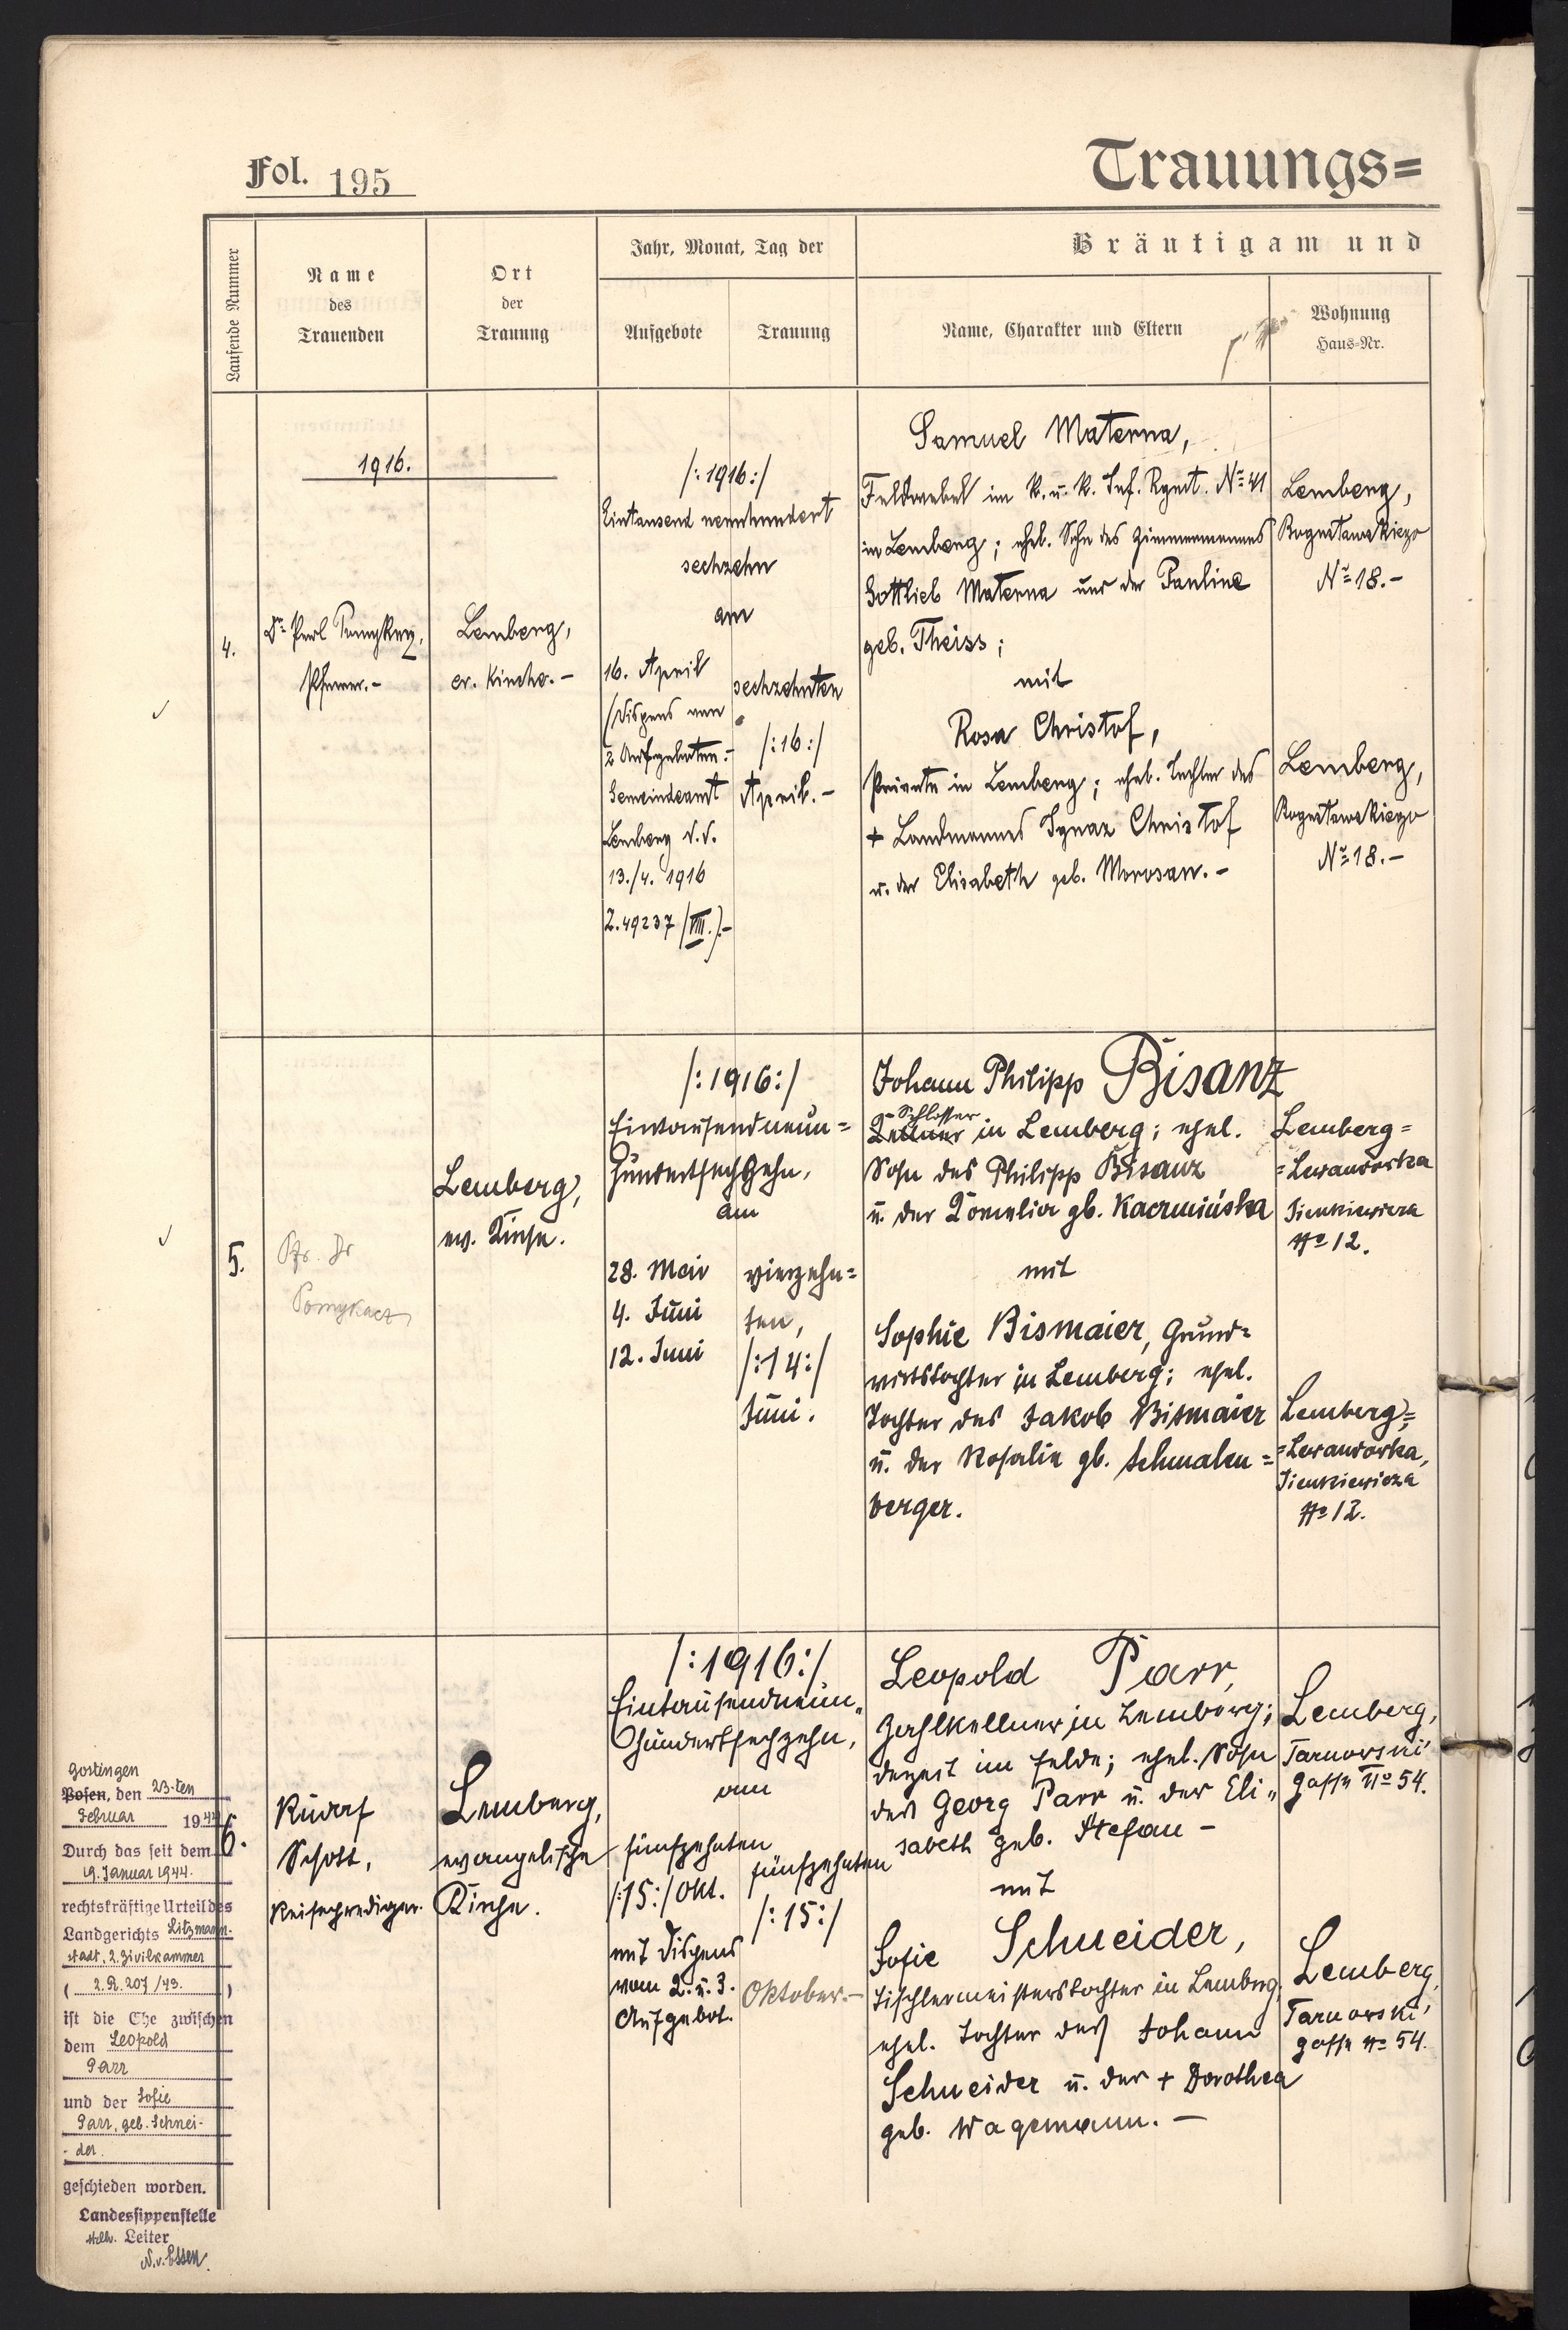 Fol. 195
Trauungs=
Laufende Nummer
Name
des
Trauenden
Ort
der
Trauung
Jahr, Monat, Tag der
Aufgebote
Trauung
Bräutigam und
Name, Charakter und Eltern
Wohnung
Haus-Nr.
1916.
4.
Pfarrer.-
Lemberg,
ev. Kirche.-
/:1916:/
Eintausend neunhundert
sechzehn
am
16. April
/Dispens von
2 Aufgeboten:-
Gemeindeamt
Lemberg v.
13./4. 1916
Z.49237/VIII.).-
sechzehnten
/:16:/
April.-
Samuel Materna,
Feldwebel im k.u.k. Inf. Rgmt. No 41
in Lemberg; ehel. Sohn des Zimmermannes
Gottlieb Materna und der Pauline
geb. Theiss;
mit
Rosa Christof,
Private in Lemberg; ehel. Tochter des
+ Landmannes Ignaz Christof
u. der Elisabeth geb. Morosan.-
Lemberg,
No 18.-
Lemberg,
No 18.-
5.
Pfr. Dr
Lemberg,
ev. Kirche.
/:1916:/
Eintausendneun=
hundertsechzehn,
am
28. Mai
4. Juni
12. Juni
vierzehn=
ten,
/:14:/
Juni.
Johann Philipp Bisanz
Schlosser
in Lemberg; ehel.
Sohn des Philipp Bisanz
u. der Kornelia gb. Kaczmińska
mit
Sophie Bismaier, Grund=
wirtstochter in Lemberg; ehel.
Tochter des Jakob Bismaier
u. der Rosalie gb. Schmalen=
berger.
Lemberg=
=Lewandorka
Sienkiewicza
No 12.
Lemberg=
=Lewandorka,
Sienkiewicza
No 12.
6.
Rudolf
Schott,
Reiseprediger.
Lemberg,
evangelische
Kirche.
/:1916:/
Eintausendneun„
hundertsechzehn,
am
fünfzehnten
/:15:/ Okt.
mit Dispens
vom 2. u. 3.
Aufgebot.
fünfzehnten
/:15:/
Oktober.-
Leopold Parr,
Zahlkellner in Lemberg;
derzeit im Felde; ehel. Sohn
des Georg Parr u. der Eli„
sabeth geb. Stefan -
mit
Sofie Schneider,
Tischlermeisterstochter in Lemberg,
ehel. Tochter des Johann
Schneider u. der + Dorothea
geb. Wagemann.-
Lemberg,
Tarnowski
gasse No 54.
Lemberg,
Tarnowski
gasse No 54.
Gostingen
Posen, den 23-ten
Februar 1944
Durch das seit dem
19. Januar 1944.
rechtskräftige Urteil des
Landgerichts Litzmann-
stadt, 2. Zivilkammer
( 2.R. 207/43. )
ist die Ehe zwischen
dem Leopold
Parr
und der Sofie
Parr, geb. Schnei-
- der.
geschieden worden.
Landessippenstelle
stellv. Leiter
N.v. Essen.